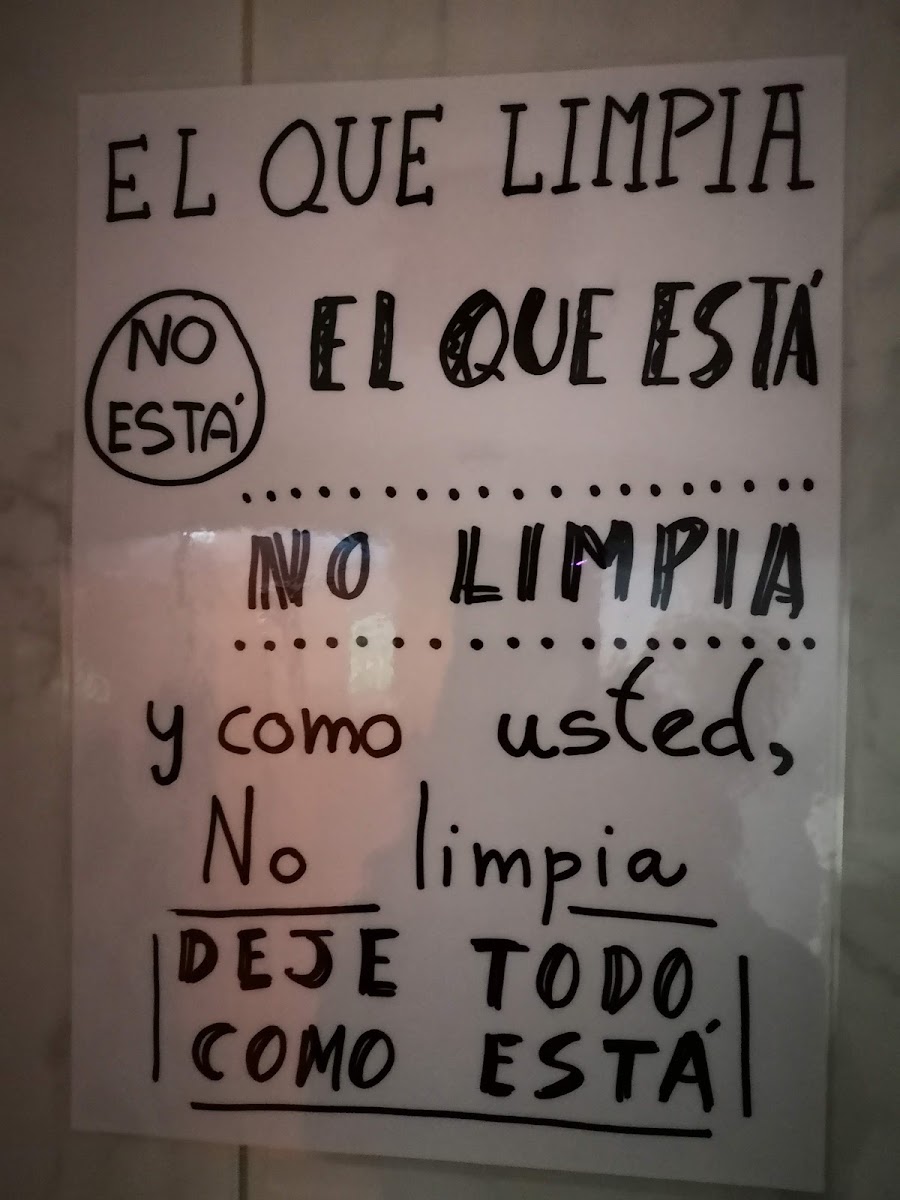 EL QUE LIMPIA
NO
ESTÁ
EL QUE ESTÁ
NO LIMPIA
y como usted,
No limpia
DEJE TODO
COMO ESTÁ